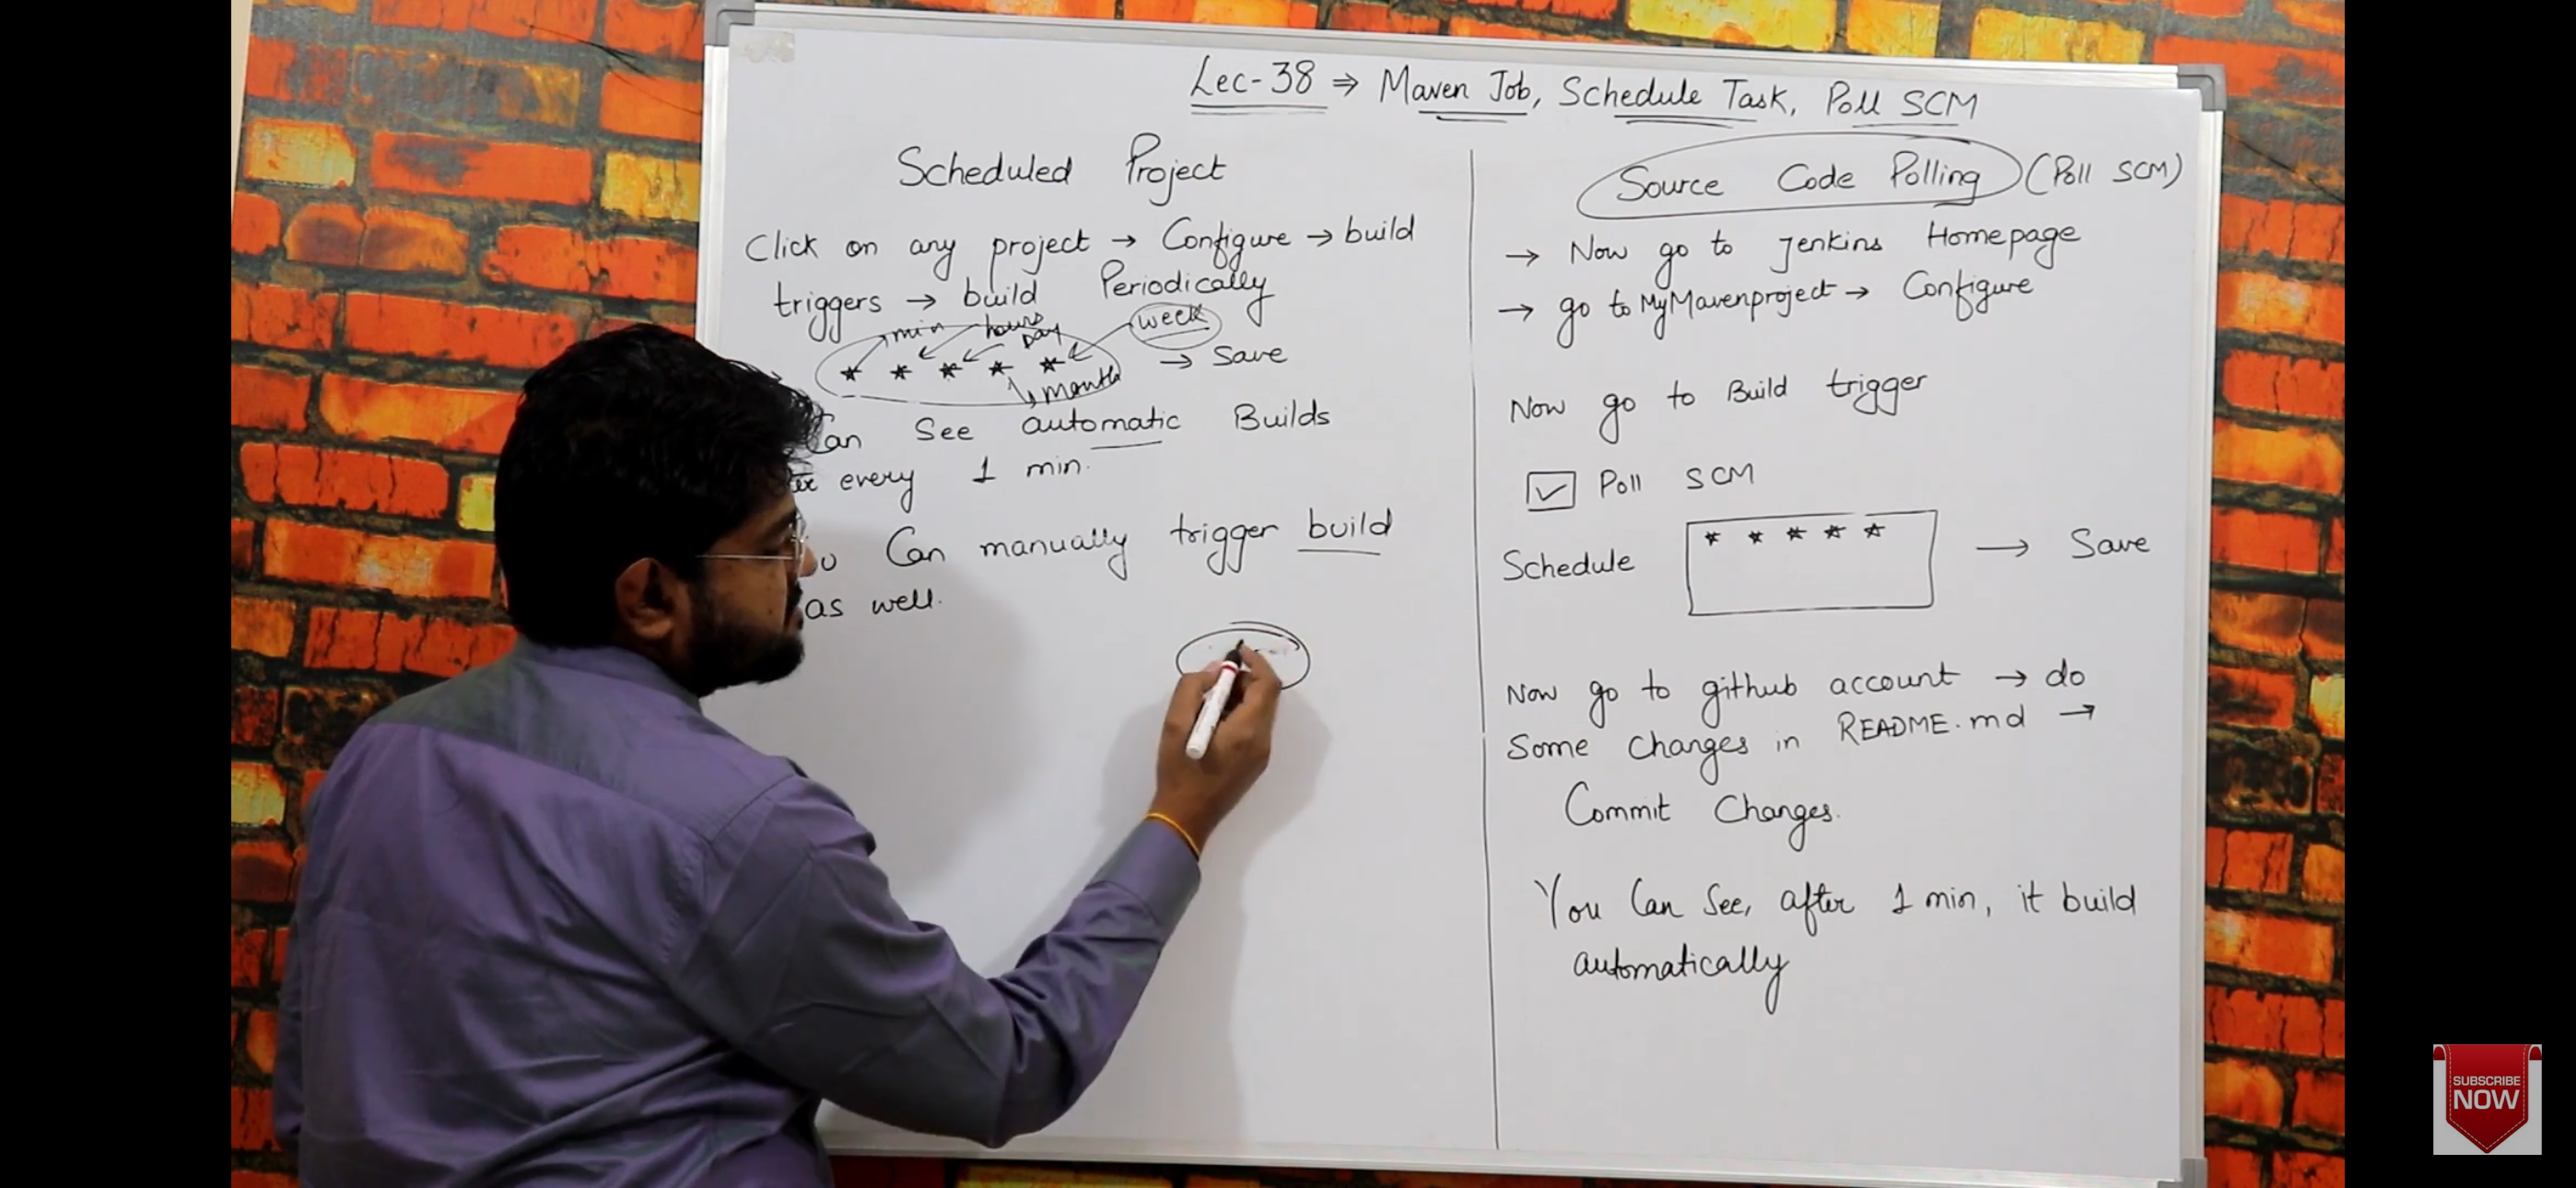 Lec-38 ⇒ Maven Job, Schedule Task, Poll SCM
Scheduled Project
Click on any project → Configure → build
triggers → build Periodically
min hours Day week
* * * * * → Save
month
Can See automatic Builds
every 1 min.
Can manually trigger build
as well.
Source Code Polling (Poll SCM)
→ Now go to Jenkins Homepage
→ go to MyMavenproject → Configure
Now go to Build trigger
☑ Poll SCM
Schedule * * * * * → Save
Now go to github account → do
Some changes in README.md →
Commit Changes.
You Can See, after 1 min, it build
automatically
SUBSCRIBE
NOW